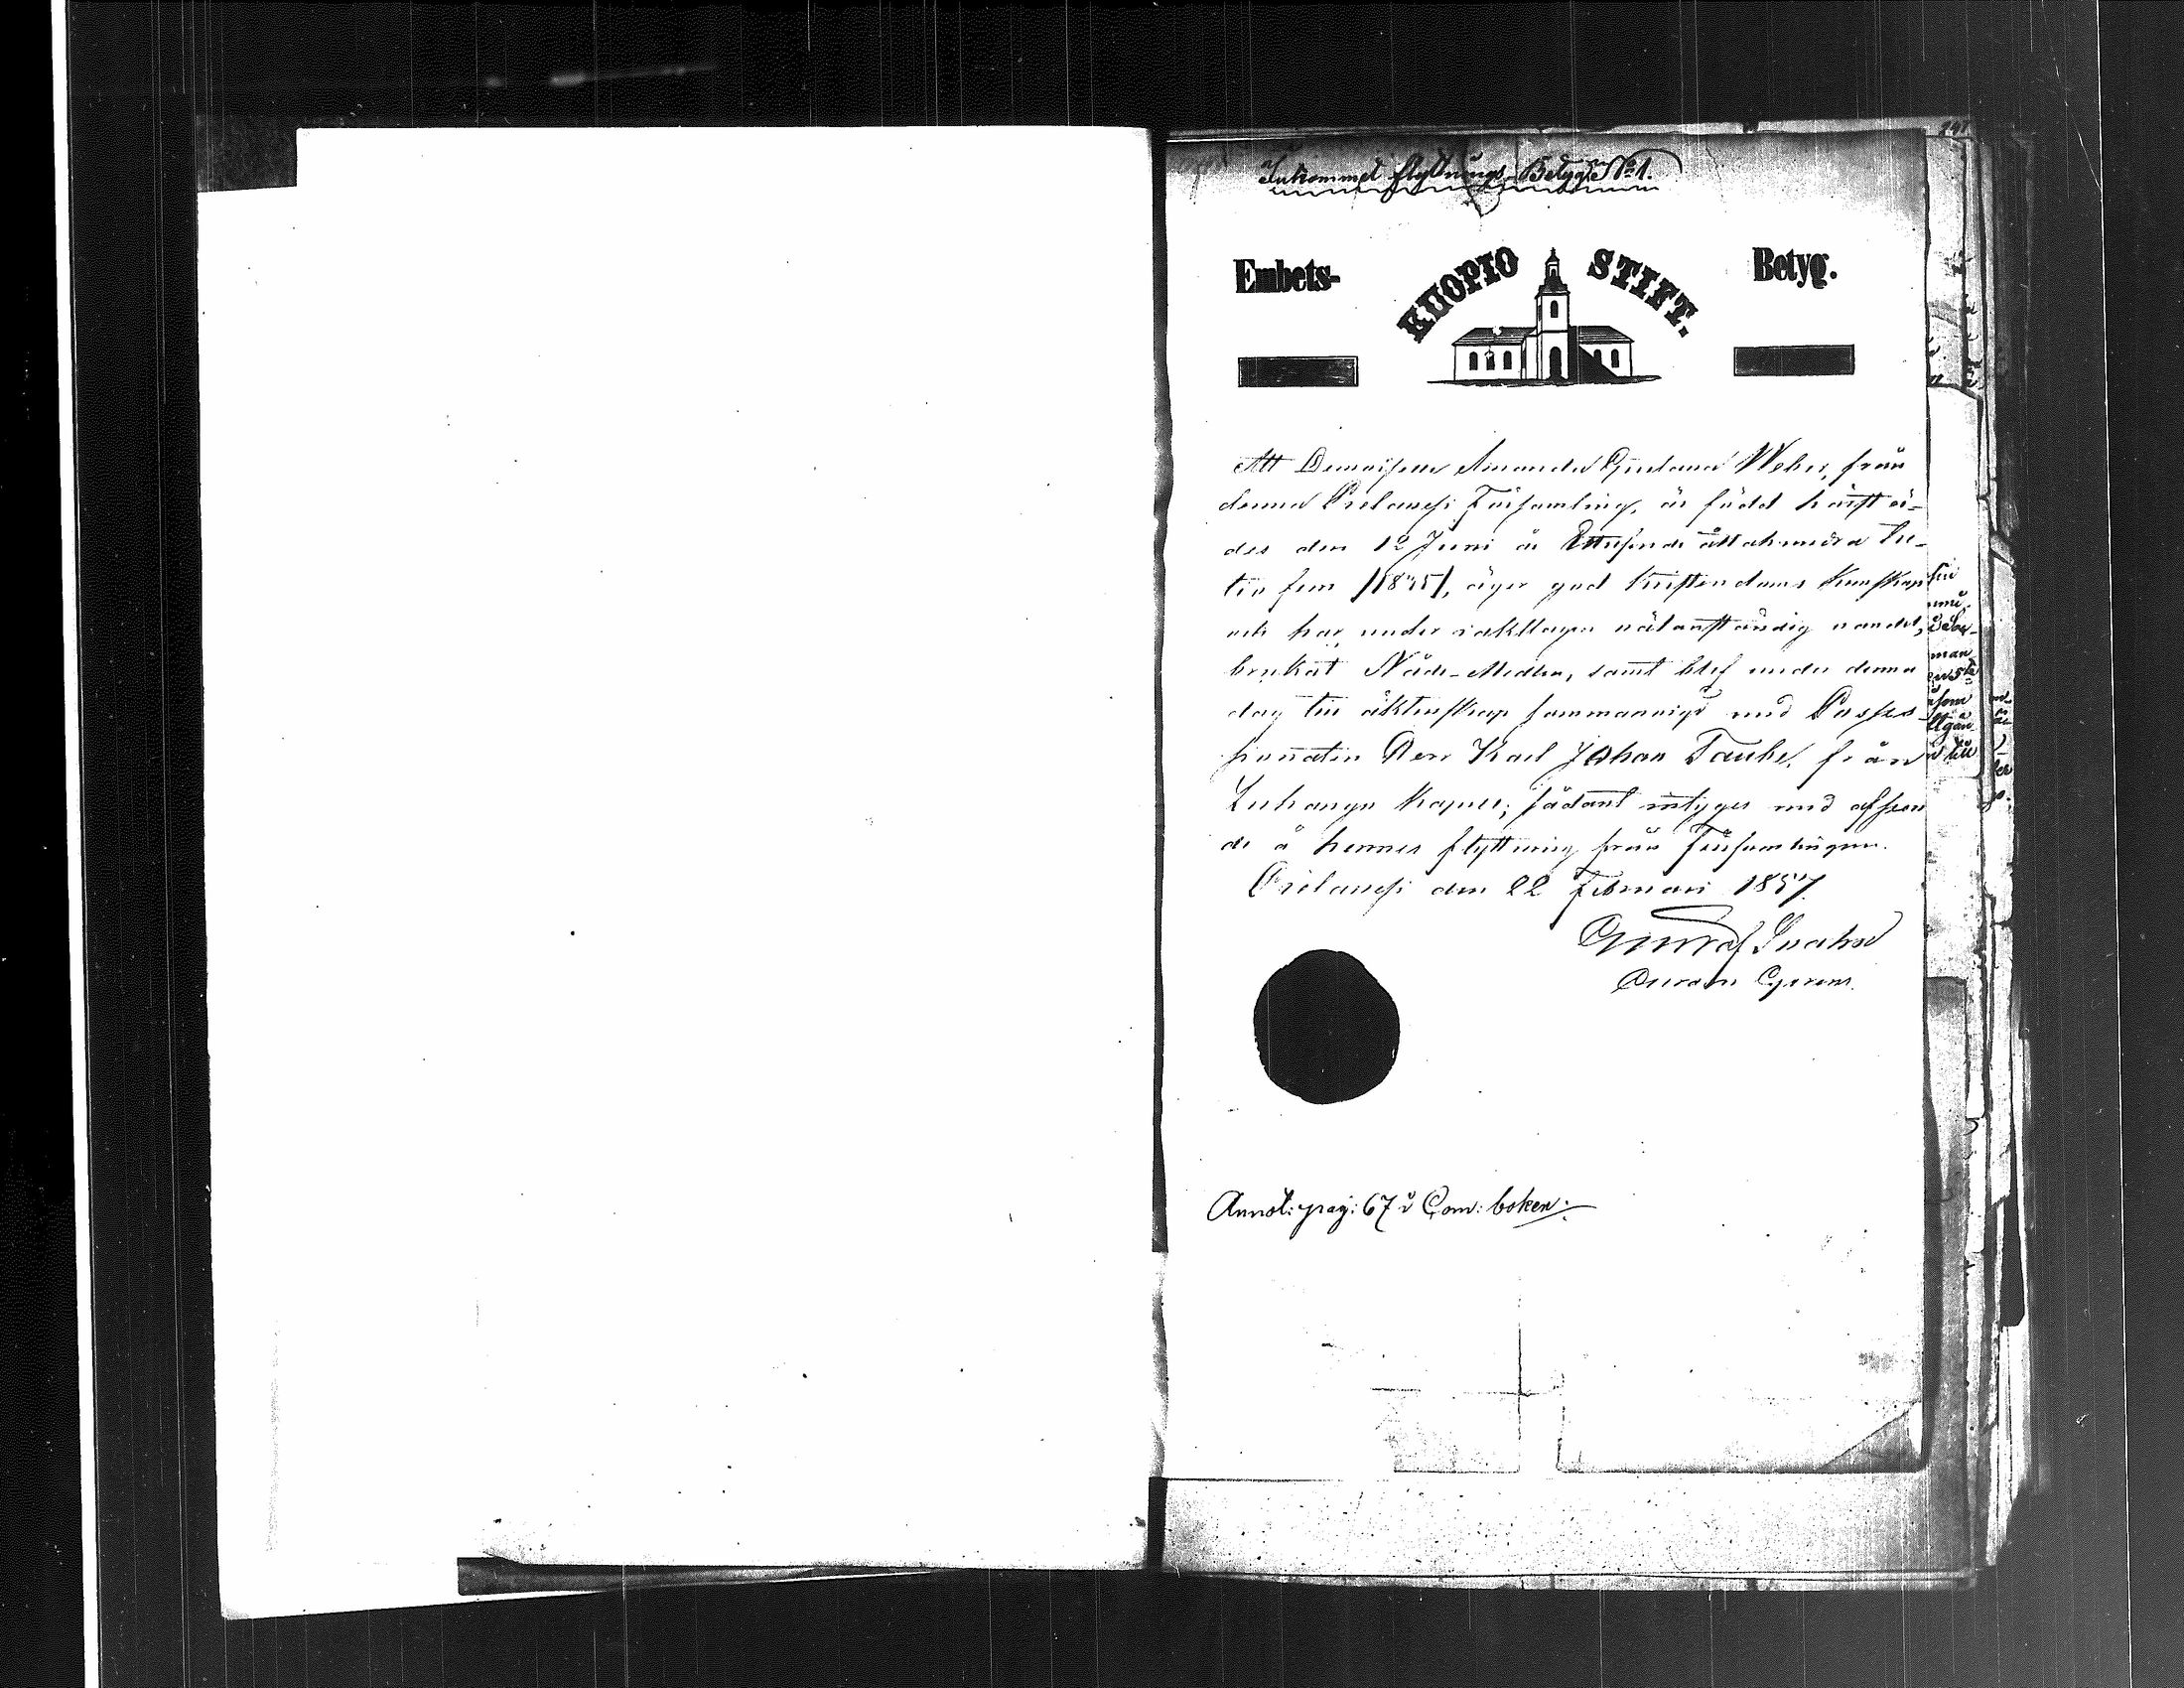 Inkommet flyttnings-Betyg No 1.
Embets- KUOPIO STIFT. Betyg.
Att Demoiselle Amanda Gustava Weber, från
denna Pielavesi Församling, är född härstä-
des den 12 Juni år Ettusende åttahundra tre-
tio fem /1835/, äger god Kristendoms kunskap
och har under iakttagen välanständig vandel,
brukat Nåde-Medlen, samt blef under denna
dag till äktenskap sammanvigd med Posses-
sionaten Herr Karl Johan Taube, från
Luhanga Kapell; sådant intyges med afseen
de å hennes flyttning från Församlingen.
Pielavesi den 22 Februari 1857.
Annot: pag: 67 i Com: boken.